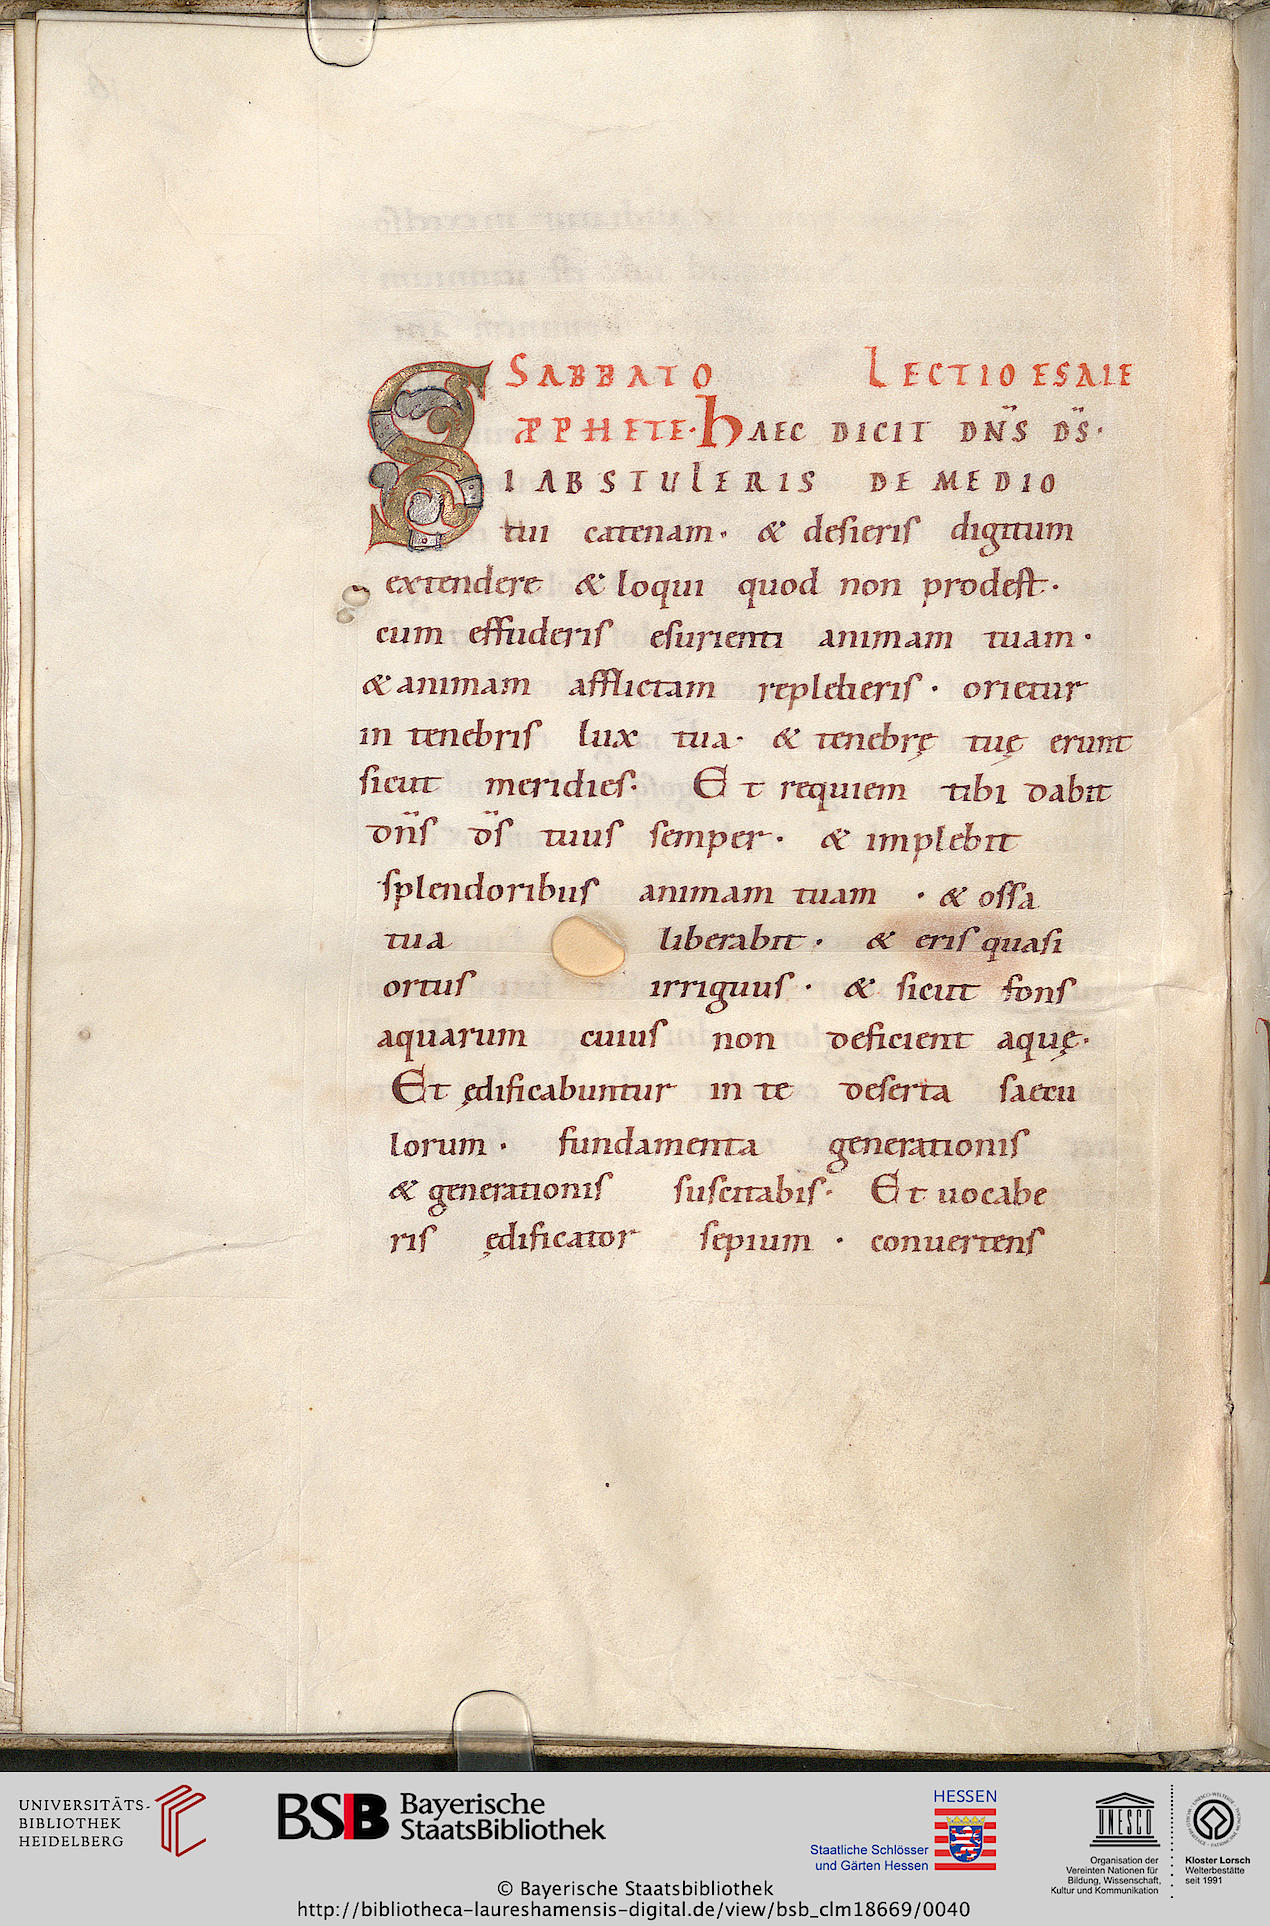 SABBATO LECTIO ESAIE
PPHETE· hAEC DICIT DN̄S D̄S·
SI ABSTULERIS DE MEDIO
tui catenam· & desieris digitum
extendere & loqui quod non prodest·
cum effuderis esurienti animam tuam·
& animam afflictam repleueris· orietur
in tenebris lux tua· & tenebrę tuę erunt
sicut meridies· Et requiem tibi dabit
dn̄s d̄s tuus semper· & implebit
splendoribus animam tuam · & ossa
tua liberabit· & eris quasi
ortus irriguus· & sicut fons
aquarum cuius non deficient aquę·
Et ędificabuntur in te deserta saecu
lorum· fundamenta generationis
& generationis suscitabis· Et uocabe
ris ędificator sepium · conuertens
UNIVERSITÄTS-
BIBLIOTHEK
HEIDELBERG
BSB Bayerische
StaatsBibliothek
HESSEN
Staatliche Schlösser
und Gärten Hessen
UNESCO
Organisation der
Vereinten Nationen für
Bildung, Wissenschaft,
Kultur und Kommunikation
Kloster Lorsch
Welterbestätte
seit 1991
© Bayerische Staatsbibliothek
http://bibliotheca-laureshamensis-digital.de/view/bsb_clm18669/0040